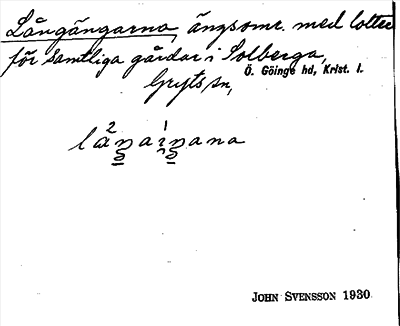 Långängarna, ängsomr. med lotter
för samtliga gårdar i Solberga,
Gryts sn, Ö. Göinge hd, Krist. l.
JOHN SVENSSON 1930